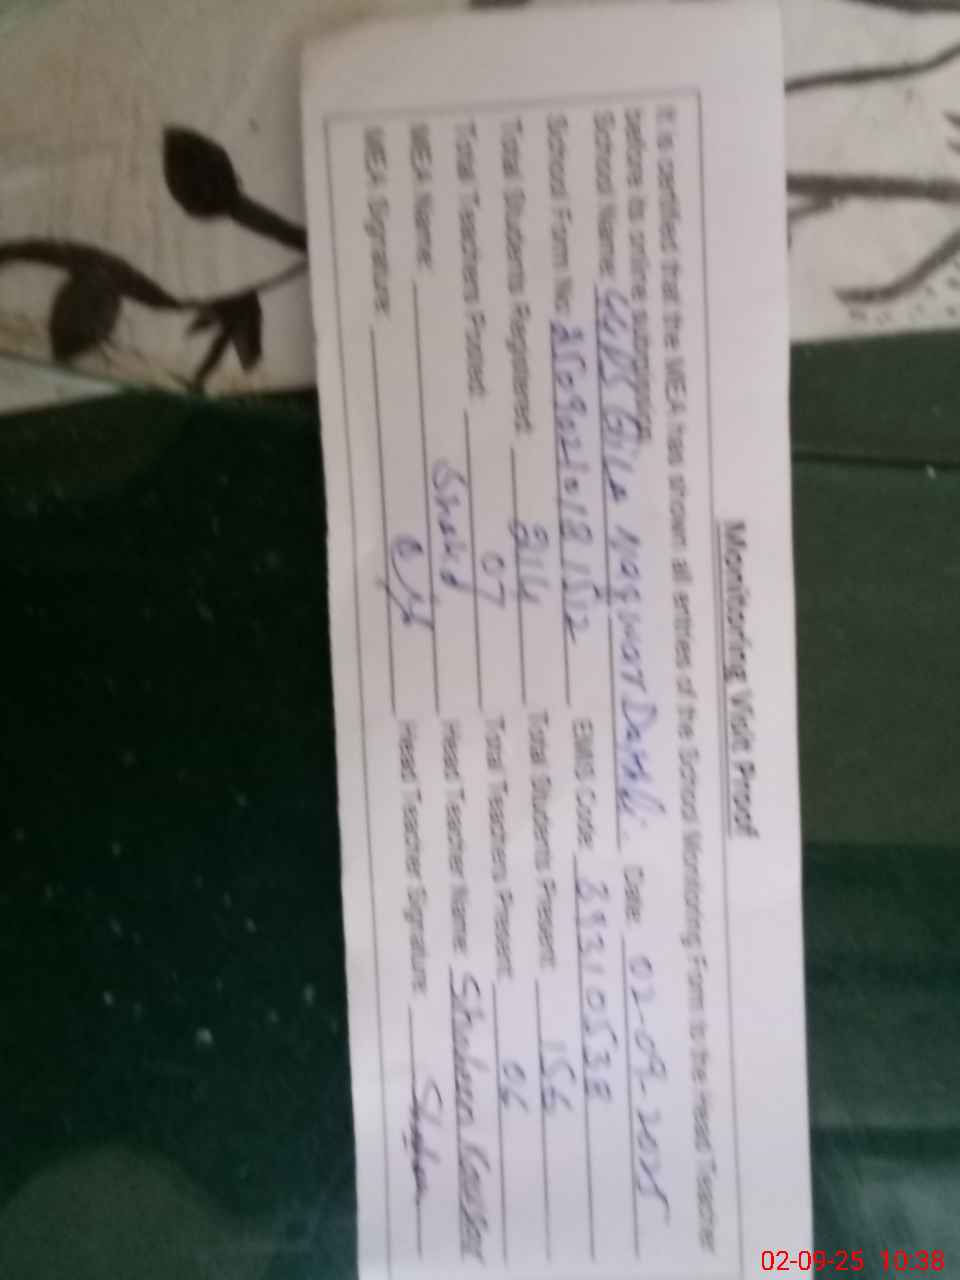 Monitoring Visit Proof
It is certified that the MEA has shown all entries of the School Monitoring Form to the Head Teacher
before its online submission.
School Name: Date: 02-09-2025
School Form No: EMIS Code:
Total Students Registered: Total Students Present: 156
Total Teachers Posted: 07 Total Teachers Present: 06
MEA Name: Shahid Head Teacher Name: Shaheen Kausar
MEA Signature: Head Teacher Signature:
02-09-25 10:38